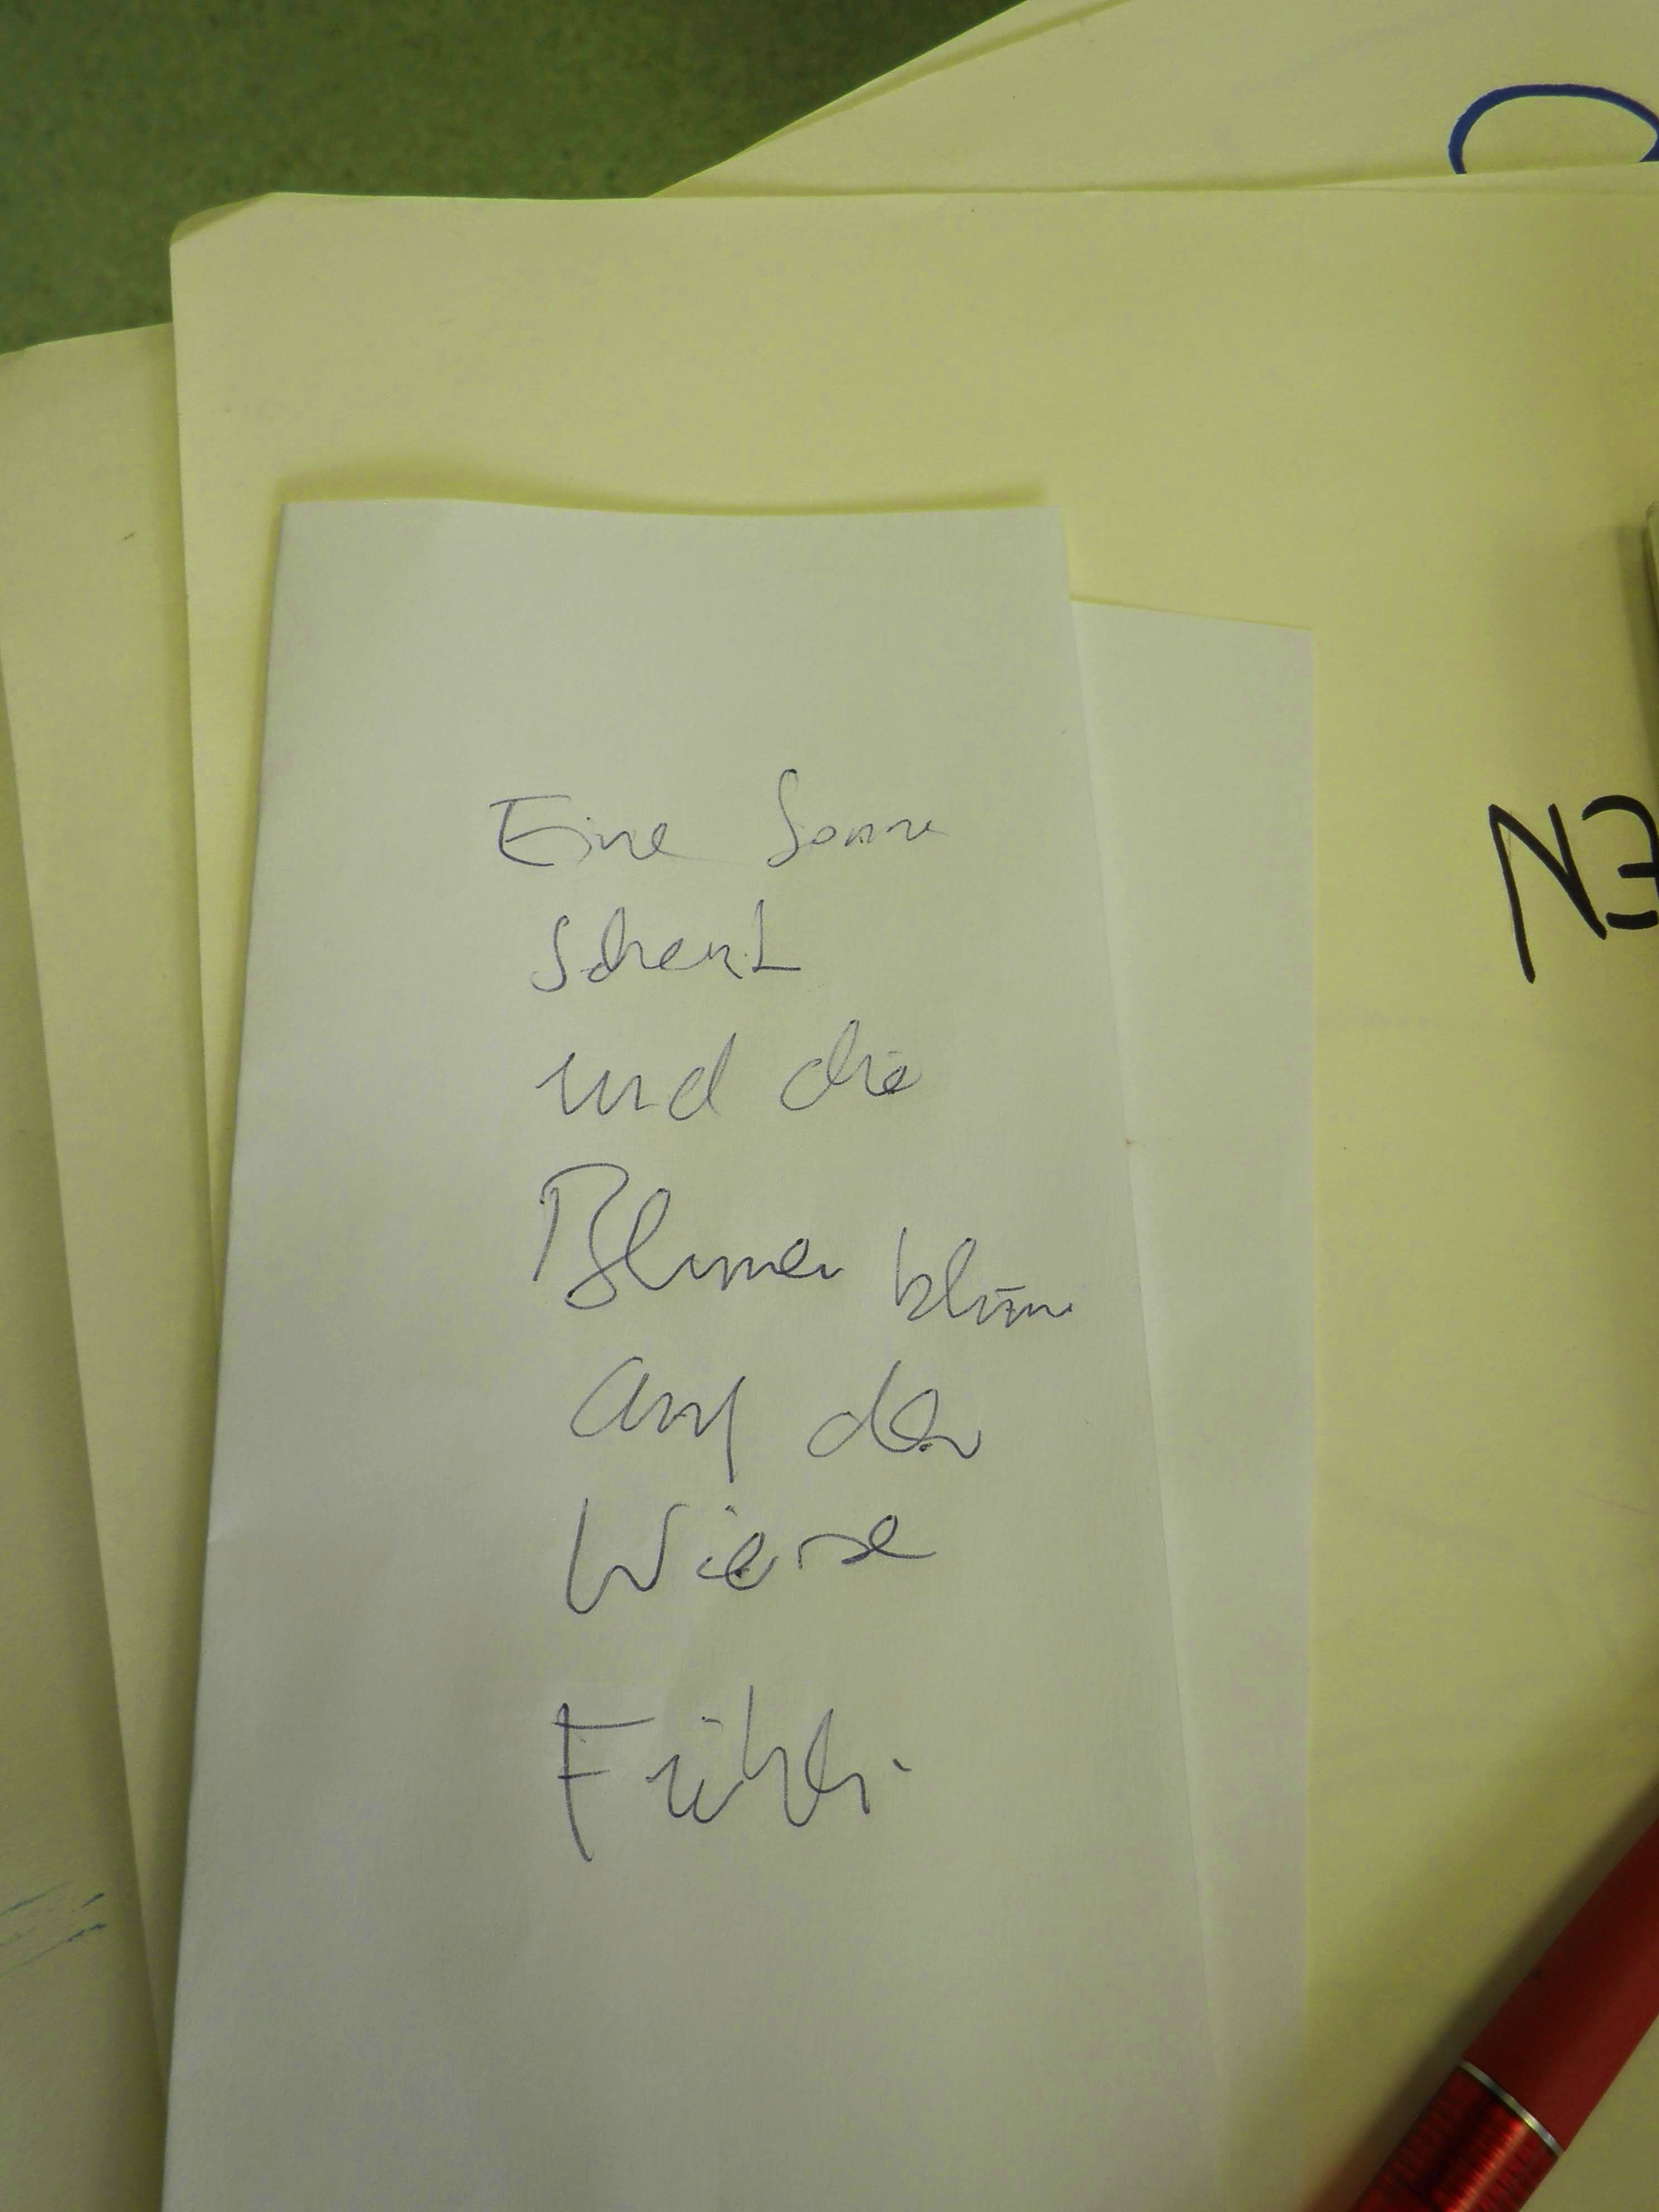 Eine Sonne
scheint
und die
Blumen blühen
auf der
Wiese